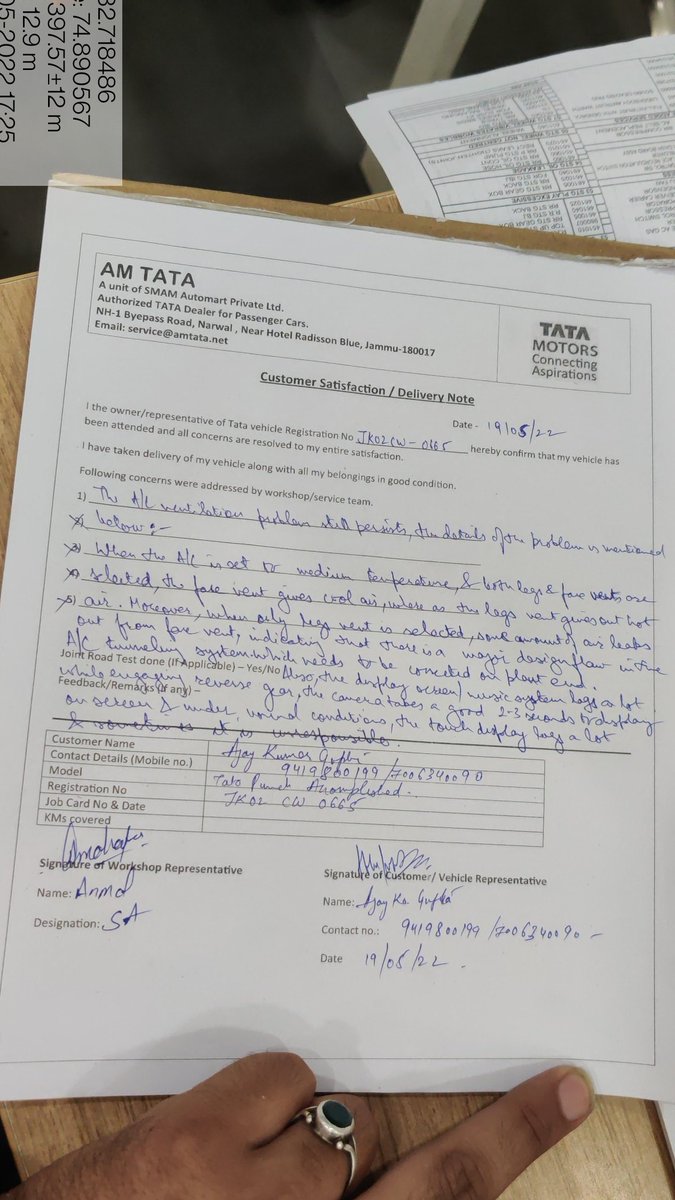 32.718486
: 74.890567
397.57±12 m
12.9 m
05-2022 17:25
AM TATA
A unit of SMAM Automart Private Ltd.
Authorized TATA Dealer for Passenger Cars.
NH-1 Byepass Road, Narwal , Near Hotel Radisson Blue, Jammu-180017
Email: service@amtata.net
TATA
MOTORS
Connecting
Aspirations
Customer Satisfaction / Delivery Note
Date - 19/05/22
I the owner/representative of Tata vehicle Registration No JK02CW-0665 hereby confirm that my vehicle has
been attended and all concerns are resolved to my entire satisfaction.
I have taken delivery of my vehicle along with all my belongings in good condition.
Following concerns were addressed by workshop/service team.
1) The A/C ventilation problem still persists, the details of the problem is mentioned
2) below :-
3) When the A/C is set to medium temperature, & both legs & face vents are
4) selected, the face vent gives cool air, where as the legs vent gives out hot
5) air. Moreover, when only legs vent is selected, some amount of air leaks
out from face vent, indicating that there is a major design flaw in the
A/C tunneling system which needs to be corrected on plant end.
Joint Road Test done (If Applicable) – Yes/No Also, the display screen/music system lags a lot
while engaging reverse gear, the camera takes a good 2-3 seconds to display
Feedback/Remarks (if any) –
on screen & under normal conditions, the touch display lags a lot
& sometimes it is unresponsible.
Customer Name Ajay Kumar Gupta
Contact Details (Mobile no.) 9419800199 /7006340090
Model Tata Punch Accomplished.
Registration No JK02 CW 0665
Job Card No & Date
KMs covered
Signature of Workshop Representative
Name: Anmol
Designation: SA
Signature of Customer/ Vehicle Representative
Name: Ajay Kr Gupta
Contact no.: 9419800199 /7006340090 -
Date 19/05/22 .